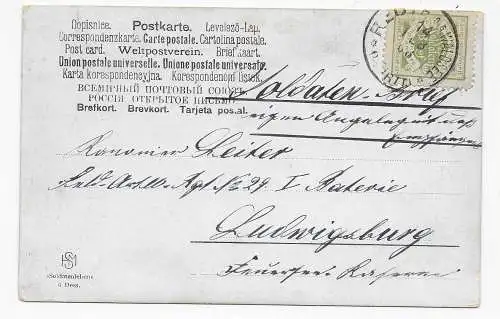 Dopisnice. Postkarte. Levelező-Lap.
Correspondenzkarte. Carte postale. Cartolina postale.
Post card. Weltpostverein. Brief kaart.
Union postale universelle. Unione postale universale.
Karta korespondencyjna. Korespondenčni listek.
ВСЕМІРНЫЙ ПОЧТОВЫЙ СОЮЗЪ.
РОССІЯ ОТКРЫТОЕ ПИСЬМО.
Brefkort. Brevkort. Tarjeta postal.
Soldaten-Brief
eigene Angelegenheit des
Empfängers
Kanonier Leiter
Feld-Art.-Rgt. No 29. I Baterie
Ludwigsburg
Feuersee-Kaserne
HSM
»Soldatenleben«
6 Dess.